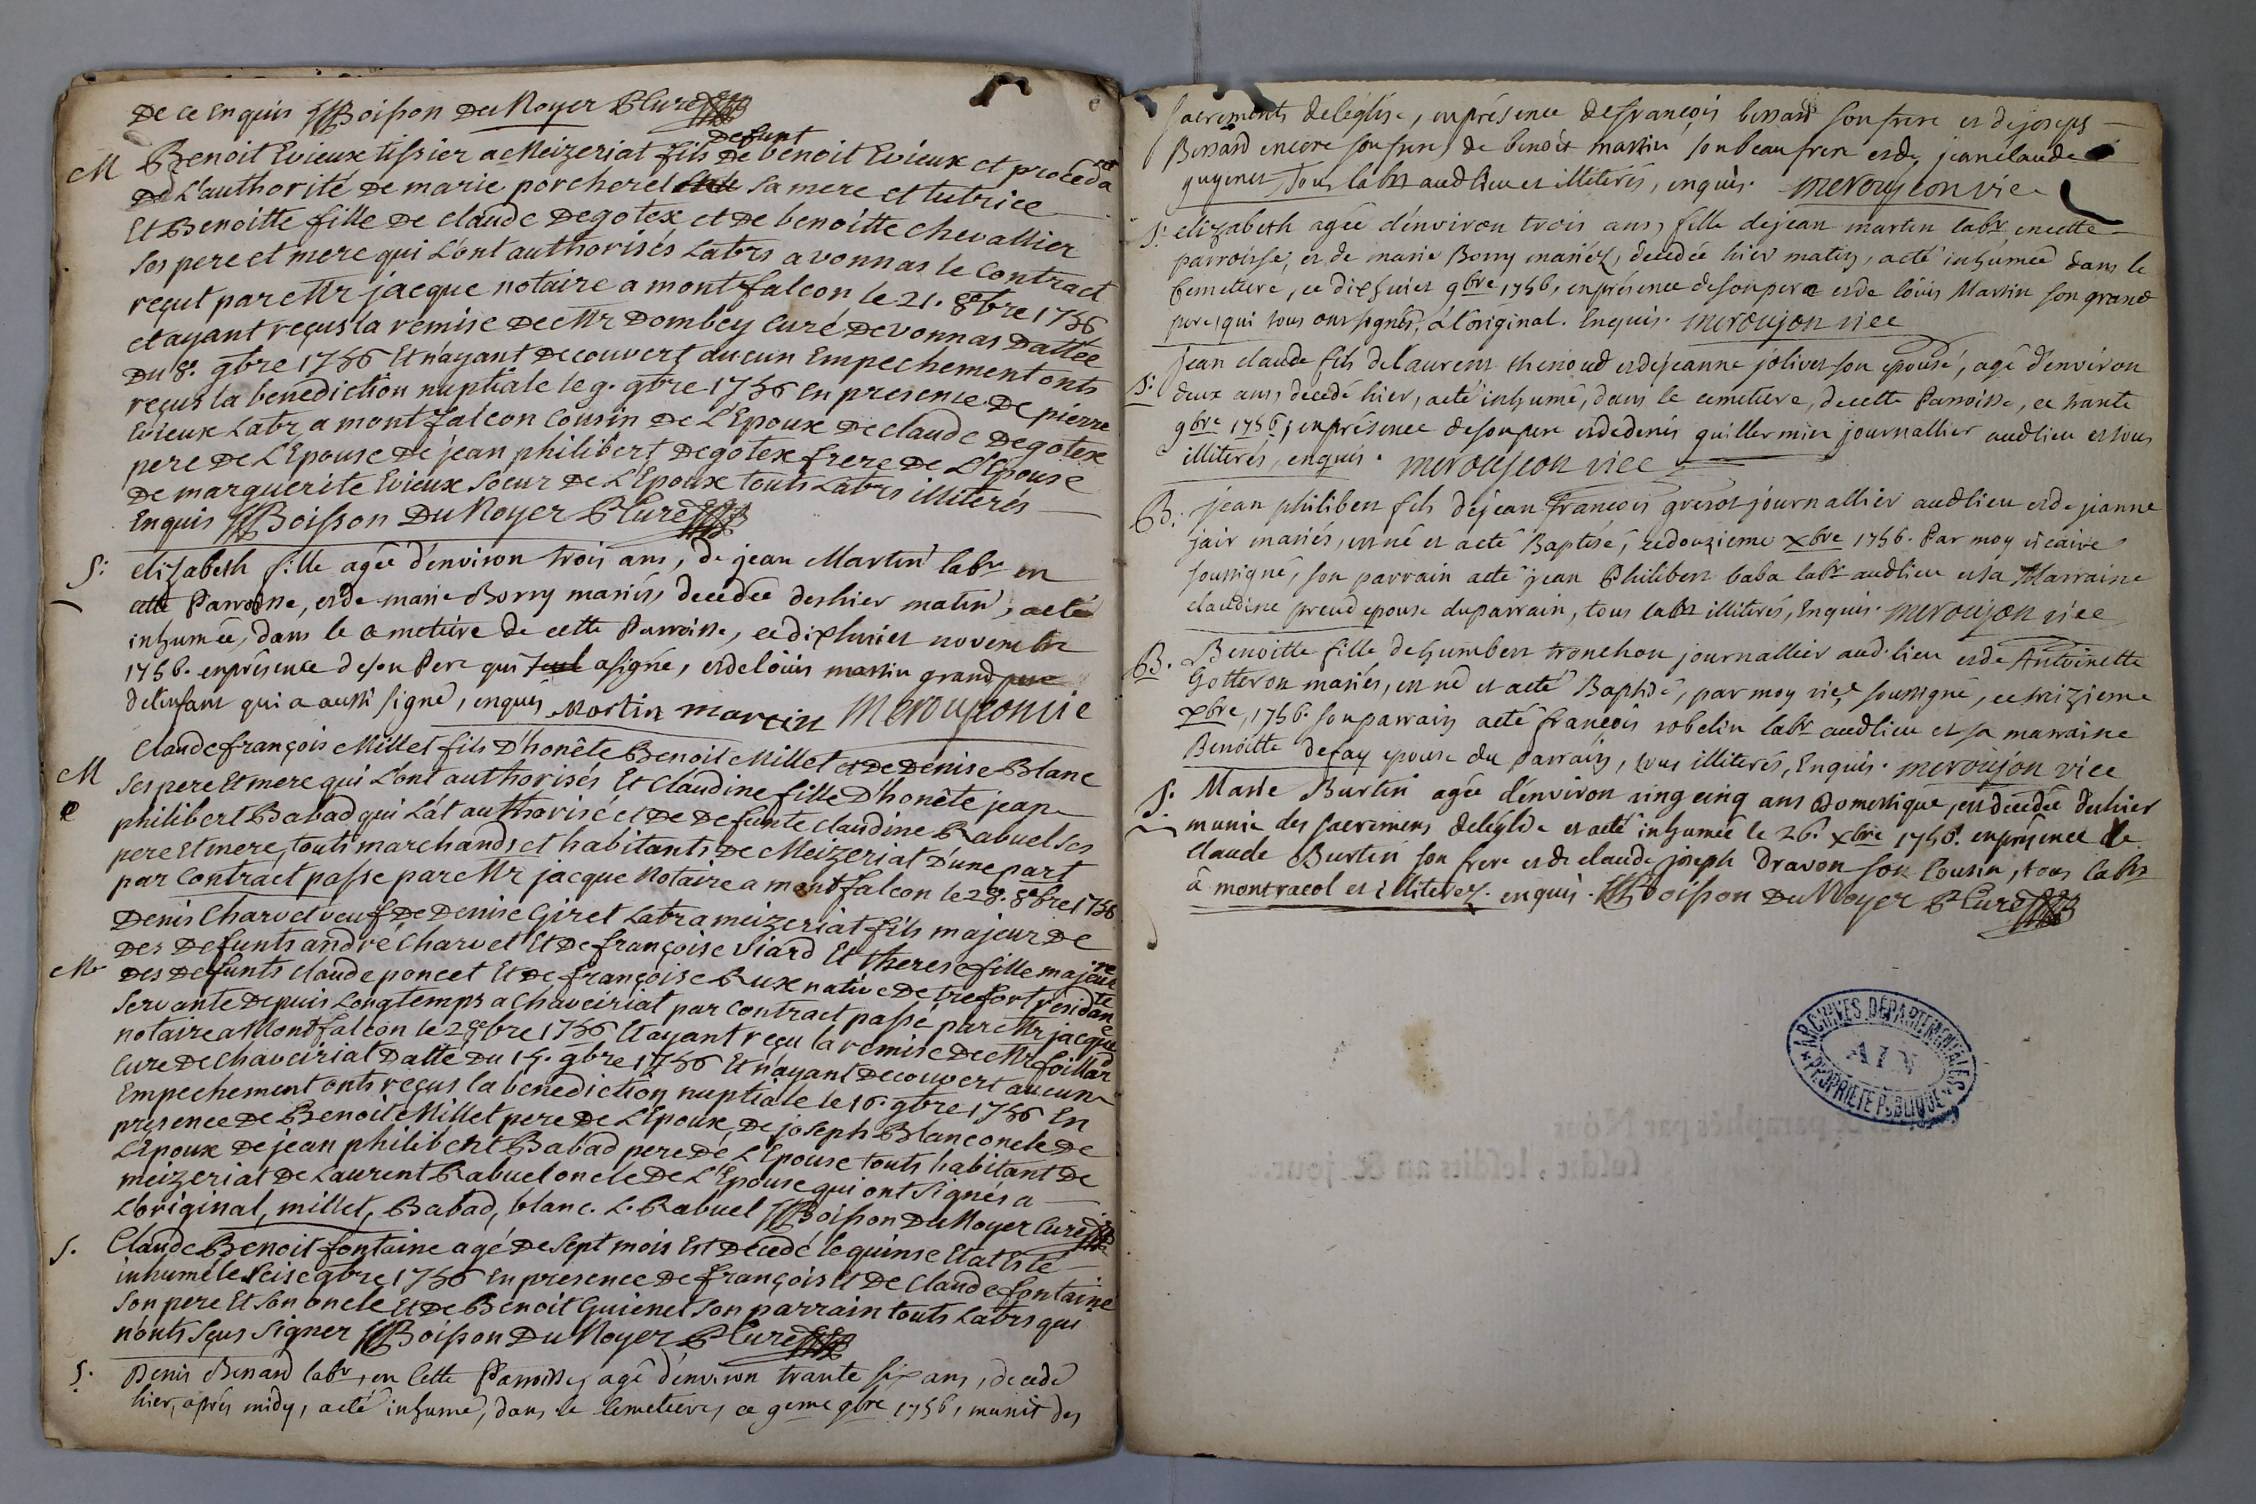 De ce Enquis Boisson Du Noyer P Curé
defunt
M Benoit Evieux tissier a Meizeriat fils de benoit Evieux et proceda
De L'authorité De marie porcherel sa mere et tutrice
Et Benoitte fille De claude Degotex et De benoitte chevallier
Ses pere et mere qui L'ont authorisés Labrs a vonnas le Contract
reçut par Mr jacque notaire a montfalcon le 21. 8bre 1756
et ayant reçus la remise De Mr Dombey Curé De vonnas Dattée
Du 8. 9bre 1756 Et n'ayant Decouvert aucun Empechement onts
reçus la benediction nuptiale le 9. 9bre 1756 En presence De pierre
Evieux Labr a montfalcon Cousin De L'Epoux De claude Degotex
pere De L'Epouse De jean philibert Degotex frere De L'Epouse
De marguerite Evieux Soeur De L'Epoux touts Labrs illiterés
Enquis Boisson Du Noyer P Curé
S: elizabeth fille agée d'environ trois ans, de jean Martin labr en
cette Parroisse, et de marie Borry mariés, decedée deshier matin, a eté
inhumée, dans le cemetiere de cette Parroisse, ce dixhuict novembre
1756. en présence de son Pere qui seul a signé, et de loüis martin grand pere
de l'enfant qui a aussi signé, enquis Martin martin meroujeon vic
Claude françois Millet fils D'honête Benoit Millet et De Denise Blanc
M Ses pere Et mere qui L'ont authorisés Et Claudine fille D'honête jean
e philibert Babad qui L'at authorisé et De Defunte claudine Rabuel Ses
pere Et mere, touts marchands et habitants De Meizeriat D'une part
par Contract passe par Mr jacque Notaire a montfalcon le 28. 8bre 1756
Denis Charvet veuf De Denise Giret Labr a meizeriat fils majeur De
Des Defunts andré Charvet Et De françoise Viard Et therese fille majeure
M Des Defunts claude poncet Et De françoise Rux native De trefort residante
Servante Depuis Longtemps a Chaveiriat par Contract passé par Mr jacque
notaire a Montfalcon le 2 8bre 1756 Et ayant reçu la remise De Mr foillard
Curé De chaveiriat Datté Du 15. 9bre 1756 Et n'ayant Decouvert aucun
Empechement onts reçus la benediction nuptiale le 16. 9bre 1756 En
presence De Benoit Millet pere De L'Epoux, De joseph Blanc oncle De
L'Epoux De jean philibert Babad pere De L'Epouse touts habitant De
meizeriat De Laurent Rabuel oncle De L'Epouse qui ont Signés a
L'original, millet, Babad, blanc. L. Rabuel Boisson Du Noyer Curé
S. Claude Benoit fontaine agé De Sept mois Est Decedé le quinse Et at Eté
inhumé le Seise 9bre 1756 En presence De françois Et De Claude fontaine
Son pere Et Son oncle Et De Benoit Guienet Son parrain touts Labrs qui
n'onts Sçus Signer Boisson Du Noyer P Curé
S. Denis Bessard labr, en Cette Parroisse, agé d'environ trante six ans, decedé
hier, aprés midy, a eté inhumé, dans le Cemetiere, ce 9eme 9bre 1756, munit des
sacrements de l'église, en présence de françois bessard son frere et de joseph
Bessard encore son frere, de benoit martin son beau frere et de, jean claude
guyenet tous labrs audlieu et illiterés, enquis. meroujeon vic
S: elizabeth agée d'environ trois ans, fille de jean martin labr en cette
parroisse, et de marie Borry mariéz, decedée hier matin, a eté inhumée dans le
cemetiere, ce dixhuict 9bre 1756, en présence de son pere et de loüis Martin son grand
pere, qui tous ont signés, à l'original. Enquis. meroujon vice
S: jean claude fils de laurent thenoud et de jeanne jolivet son epouse, agé d'environ
deux ans, decedé hier, a eté inhumé, dans le cemetiere, de cette Parroisse, ce trante
9bre 1756, en présence de son pere et de denis guillermin journallier audlieu et tous
illiterés, enquis. meroujeon vice
B. jean philibert fils de jean françois gresot journallier audlieu et de jeanne
jair mariés, est né et a eté Baptisé, ce douzieme xbre 1756. Par moy vicaire
soussigné, son parrain a eté jean Philibert baba labr audlieu et sa Marraine
claudine preud epouse du parrain, tous labrs illiterés, Enquis. meroujon vice
B. Benoitte fille de humbert tronchon journallier aud. lieu et de Antoinette
Gotteron mariés, est né et a eté Baptisé, par moy vice soussigné, ce treizieme
xbre, 1756. son parrain a eté françois robelin labr audlieu et sa marraine
Benoitte defay epouse du Parrain, tous illiterés, Enquis. meroujon vice
S: Marie Burtin agée d'environ vingcinq ans Domestique, est decedée deshier
munie des sacremens de l'église et a eté inhumée le 26. xbre 1756. en présence de
Claude Burtin son frere et de claude joseph Dravon son Cousin, tous labrs
à montracol et illiterez. enquis. Boisson Du Noyer P Curé
ARCHIVES DÉPARTEMENTALES
AIN
PROPRIÉTÉ PUBLIQUE